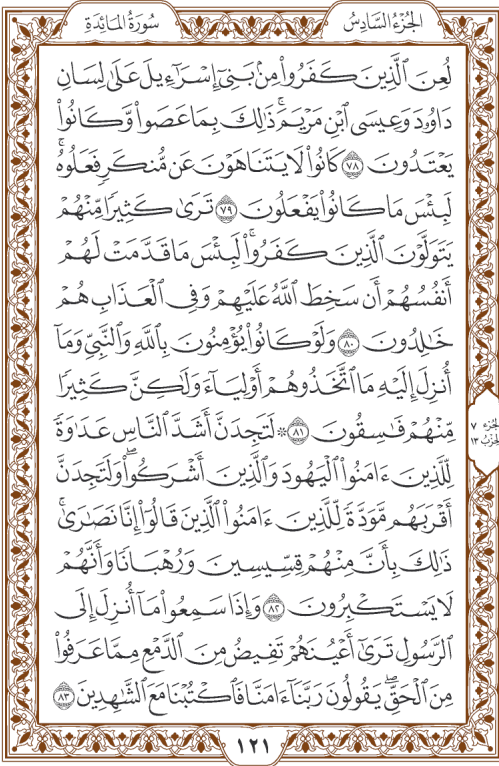 الجُزْءُ السَّادِسُ سُورَةُ المَائِدَةِ
لُعِنَ ٱلَّذِينَ كَفَرُواْ مِنۢ بَنِيٓ إِسۡرَٰٓءِيلَ عَلَىٰ لِسَانِ
دَاوُۥدَ وَعِيسَى ٱبۡنِ مَرۡيَمَۚ ذَٰلِكَ بِمَا عَصَواْ وَّكَانُواْ
يَعۡتَدُونَ ٧٨ كَانُواْ لَا يَتَنَاهَوۡنَ عَن مُّنكَرٖ فَعَلُوهُۚ
لَبِئۡسَ مَا كَانُواْ يَفۡعَلُونَ ٧٩ تَرَىٰ كَثِيرٗا مِّنۡهُمۡ
يَتَوَلَّوۡنَ ٱلَّذِينَ كَفَرُواْۚ لَبِئۡسَ مَا قَدَّمَتۡ لَهُمۡ
أَنفُسُهُمۡ أَن سَخِطَ ٱللَّهُ عَلَيۡهِمۡ وَفِي ٱلۡعَذَابِ هُمۡ
خَٰلِدُونَ ٨٠ وَلَوۡ كَانُواْ يُؤۡمِنُونَ بِٱللَّهِ وَٱلنَّبِيِّ وَمَآ
أُنزِلَ إِلَيۡهِ مَا ٱتَّخَذُوهُمۡ أَوۡلِيَآءَ وَلَٰكِنَّ كَثِيرٗا
مِّنۡهُمۡ فَٰسِقُونَ ٨١ ۞ لَتَجِدَنَّ أَشَدَّ ٱلنَّاسِ عَدَٰوَةٗ
الجزء ٧
الحزب ١٣
لِّلَّذِينَ ءَامَنُواْ ٱلۡيَهُودَ وَٱلَّذِينَ أَشۡرَكُواْۖ وَلَتَجِدَنَّ
أَقۡرَبَهُم مَّوَدَّةٗ لِّلَّذِينَ ءَامَنُواْ ٱلَّذِينَ قَالُوٓاْ إِنَّا نَصَٰرَىٰۚ
ذَٰلِكَ بِأَنَّ مِنۡهُمۡ قِسِّيسِينَ وَرُهۡبَانٗا وَأَنَّهُمۡ
لَا يَسۡتَكۡبِرُونَ ٨٢ وَإِذَا سَمِعُواْ مَآ أُنزِلَ إِلَى
ٱلرَّسُولِ تَرَىٰٓ أَعۡيُنَهُمۡ تَفِيضُ مِنَ ٱلدَّمۡعِ مِمَّا عَرَفُواْ
مِنَ ٱلۡحَقِّۖ يَقُولُونَ رَبَّنَآ ءَامَنَّا فَٱكۡتُبۡنَا مَعَ ٱلشَّٰهِدِينَ ٨٣
١٢١